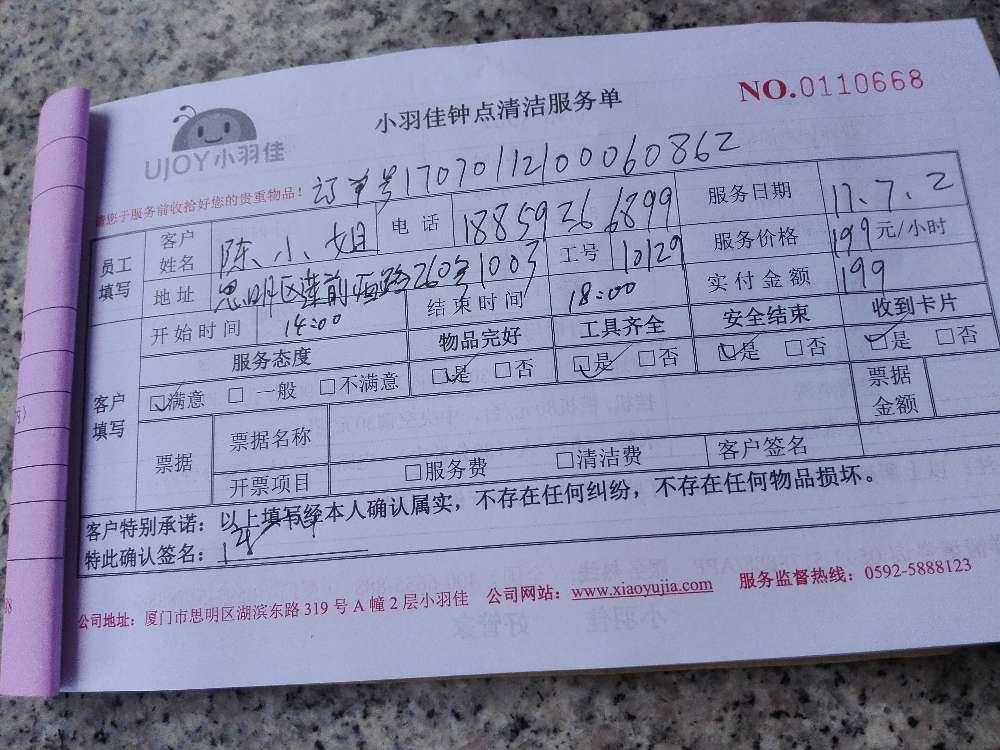 小羽佳钟点清洁服务单
NO.0110668
UJOY小羽佳
请您于服务前收拾好您的贵重物品！
订单号17070112100060862
员工填写 客户姓名 陈小姐 电话 18859266899 服务日期 17.7.2
地址 思明区莲前西路260号1003 工号 10129 服务价格 199元/小时
开始时间 14:00 结束时间 18:00 实付金额 199
客户填写 服务态度 物品完好 工具齐全 安全结束 收到卡片
☑满意 □一般 □不满意 ☑是 □否 ☑是 □否 ☑是 □否 ☑是 □否
票据 票据名称 票据金额
开票项目 □服务费 □清洁费 客户签名
客户特别承诺：以上填写经本人确认属实，不存在任何纠纷，不存在任何物品损坏。
特此确认签名：
公司地址：厦门市思明区湖滨东路319号A幢2层小羽佳 公司网站：www.xiaoyujia.com 服务监督热线：0592-5888123